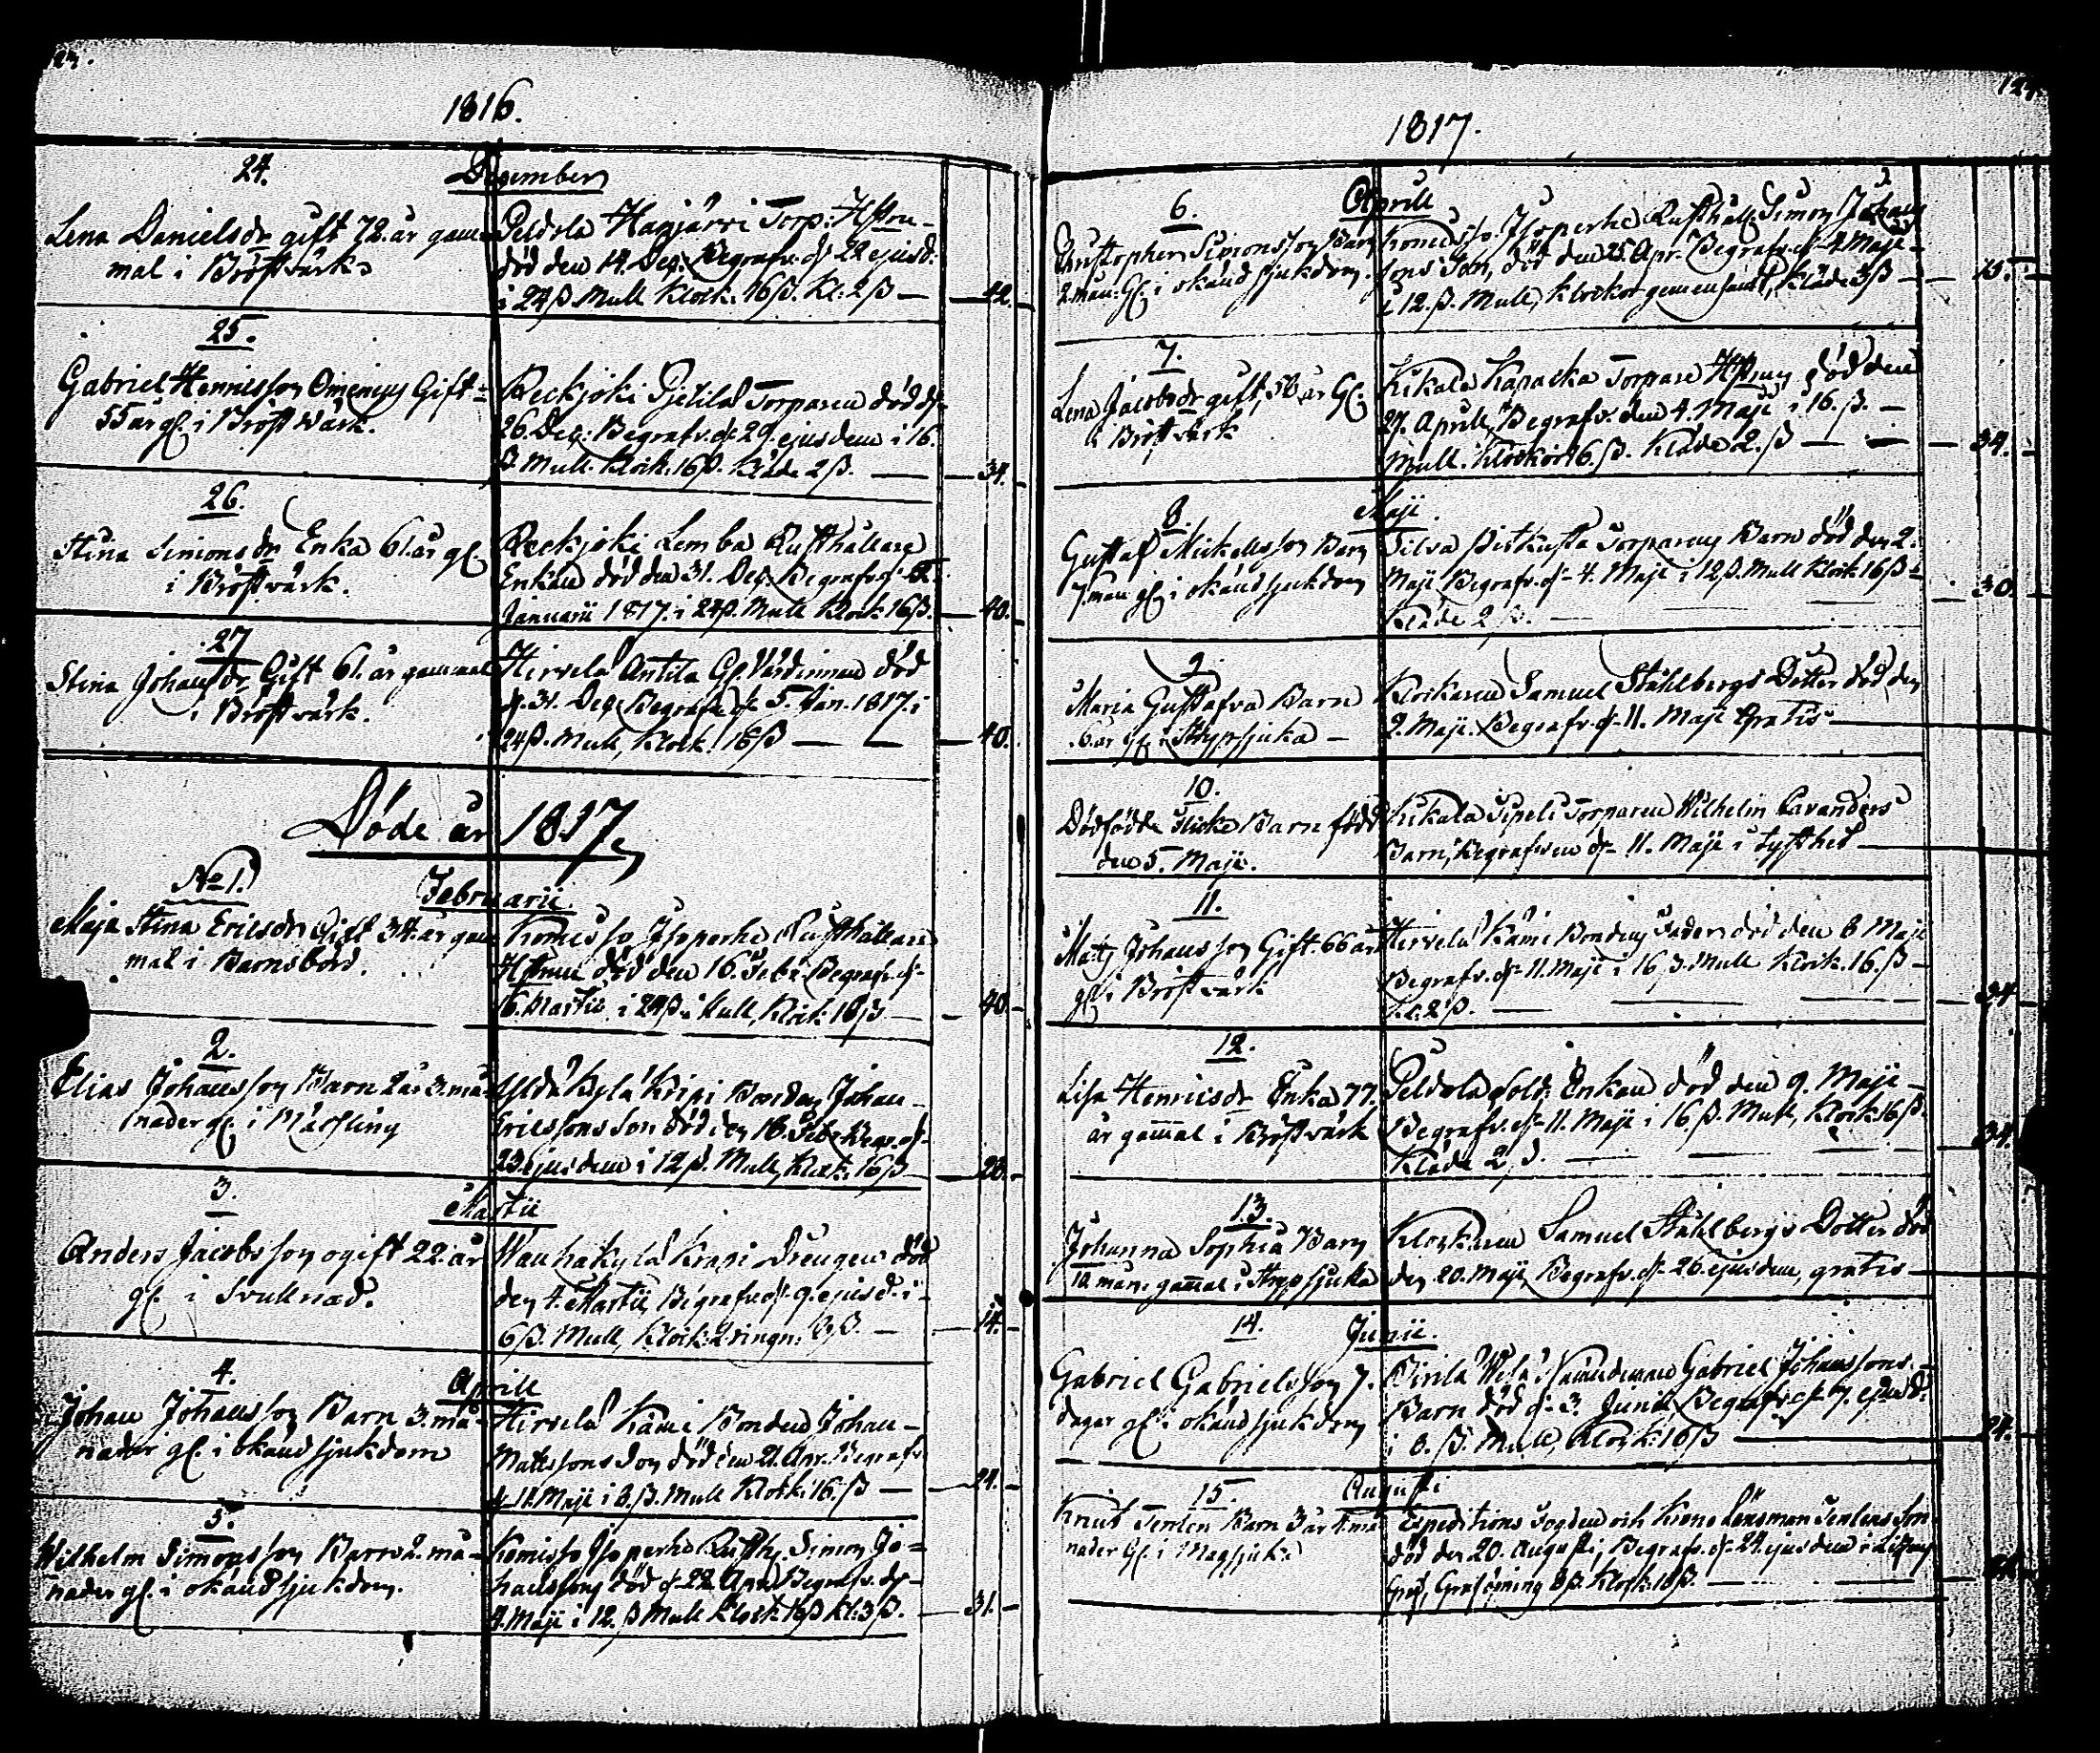 1816.
December
24.
Lena Danielsdr gift 72. år gam-
mal i Bröstvärk
Peldola Harjärvi Torp: Hstru
död den 14. Dec: Begrafv. d. 22 ejusd.
i 24 ß. Mull Klock. 16 ß. Kl: 2 ß — 42.
25.
Gabriel Henricsson Gift
55 år gl. i Bröst värk.
Reckjoki Torparen död d.
26. Dec: Begrafv. d. 29. ejusdem i 16.
ß. Mull. Klock. 16 ß. Kläde 2 ß. — 34.
26.
Stina Simonsdr Enka 61. år gl.
i Bröstvärk.
Reckjoki Lemba Rusthållare
Enkan död den 31. Dec: Begrafv. d. 5.
Januarii 1817. i 24 ß. Mull Klock 16 ß. — 40.
27
Stina Johansdr Gift 61. år gammal
i Bröstvärk.
Hirvelä Antila Gl. Värdinnan död
d. 31. Dec: Begrafv. d. 5. Jan. 1817. i
24 ß. Mull, Klock. 16 ß — 40.
Döde år 1817,
Februarii
No 1.
Maja Stina Ericsdr Gift 34. år gam-
mal i Barnsbörd.
Komisso Isoperhe Rusthållare
Hstrun död den 16. Febr. Begrafv. d.
16. Martii i 24 ß. Mull, Klock. 16 ß — 40.
2.
Elias Johansson Barn 2 år 3. må-
nader gl. i Mässling
Yldä Kylä Krapi Bonden Johan
Ericssons son död den 16. Febr. Begr. d.
23. ejusdem i 12 ß. Mull, Klock. 16 ß — 28.
3.
Martii
Anders Jacobsson ogift 22. år
gl. i Svullnad.
Wanhakylä Krapi Drengen död
den 4. Martii, Begrafv. d. 9. ejusd. i
6 ß. Mull, Klock. 2 ringn. 8 ß. — 14.
4.
Aprill
Johan Johansson Barn 3. må-
nader gl. i okänd sjukdom
Hirvelä Kämi Bonden Johan
Mattssons Son död den 21. Apr. Begrafv.
d. 11. Maji i 8. ß. Mull Klock. 16. ß — 24.
5.
Wilhelm Simonsson Barn 2. må-
nader gl. i okänd sjukdom.
Komisso Isoperhe Rusth. Simon Jo-
hanssons död d. 22. Apr. Begrafv. d.
4. Maji i 12. ß Mull Klock. 16 ß Kl: 3 ß. — 31.
1817.
6.
Aprill
Christopher Simonsson Barn
2. mån: gl. i okänd sjukdom.
Komisso Isoperhe Rusthåll. Simon Johans
sons Son, död den 25. Apr. Begrafv. d. 4. Maji
i 12. ß. Mull, Klockor gemensamt, Kläde 3 ß — 15.
7.
Lena Jacobsdr gift, år gl.
i Bröstvärk
Kikala Torpare Hstrun död den
27. Aprill, Begrafv. den 4. Maji i 16. ß. —
Mull. Klockor 16. ß. Kläde 2. ß — 34.
8.
Maji
Gustaf Mickelsson Barn
7. mån gl. i okänd sjukdom
Silva Torparens Barn död den 2.
Maji Begrafv. d. 4. Maji i 12 ß. Mull Klock. 16 ß
Kläde 2 ß. — 30.
9.
Maria Gustafva Barn
6. år gl. i Strypsjuka —
Klockaren Samuel Ståhlbergs Dotter död den
2. Maji. Begrafv. d. 11. Maji Gratis —
10.
Dödfödde flicke Barn född
den 5. Maji.
Kikala Sipeli Torparen Wilhelm Cavanders
Barn, Begrafven d. 11. Maji i tysthet —
11.
Matts Johansson Gift 66 år
gl. i Bröstvärk
Hirvelä Kämi Bondens Fader död den 6 Maji
Begrafv. d. 11. Maji i 16 ß. Mull Klock. 16. ß —
Kl. 2 ß. — 34
12.
Lisa Henricsdr Enka 77.
år gammal i Bröstvärk
Peldola Sold. Enkan död den 9. Maji
Begrafv. d. 11. Maji i 16. ß. Mull, Klock 16 ß.
Kläde 2 ß. — 34.
13.
Johanna Sophia Barn
10. mån. gammal i Strypsjuka
Klockaren Samuel Ståhlbergs Dotter död
den 20. Maji, Begrafv. d. 26. ejusdem, gratis —
14.
Junii.
Gabriel Gabrielsson 7.
dagar gl. i okänd sjukdom
Nämndeman Gabriel Johanssons
Barn död d. 3. Junii, Begrafv. d. 7. ejusd.
i 8. ß. Mull, Klock. 16 ß — 24.
15.
Augusti
Knut Barn 3 år
nader gl. i Magsjuka
Expeditions Fogden och Krono Länsman Son
död den 20. Augusti, Begrafv. d. 24. ejusdem i
Graföpning 8 ß. Klock. 16 ß. —